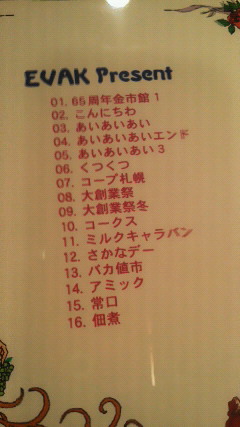 EVAK Present
01. 65周年金市館 1
02. こんにちわ
03. あいあいあい
04. あいあいあいエンド
05. あいあいあい 3
06. くつくつ
07. コープ札幌
08. 大創業祭
09. 大創業祭冬
10. コークス
11. ミルクキャラバン
12. さかなデー
13. バカ値市
14. アミック
15. 常口
16. 佃煮